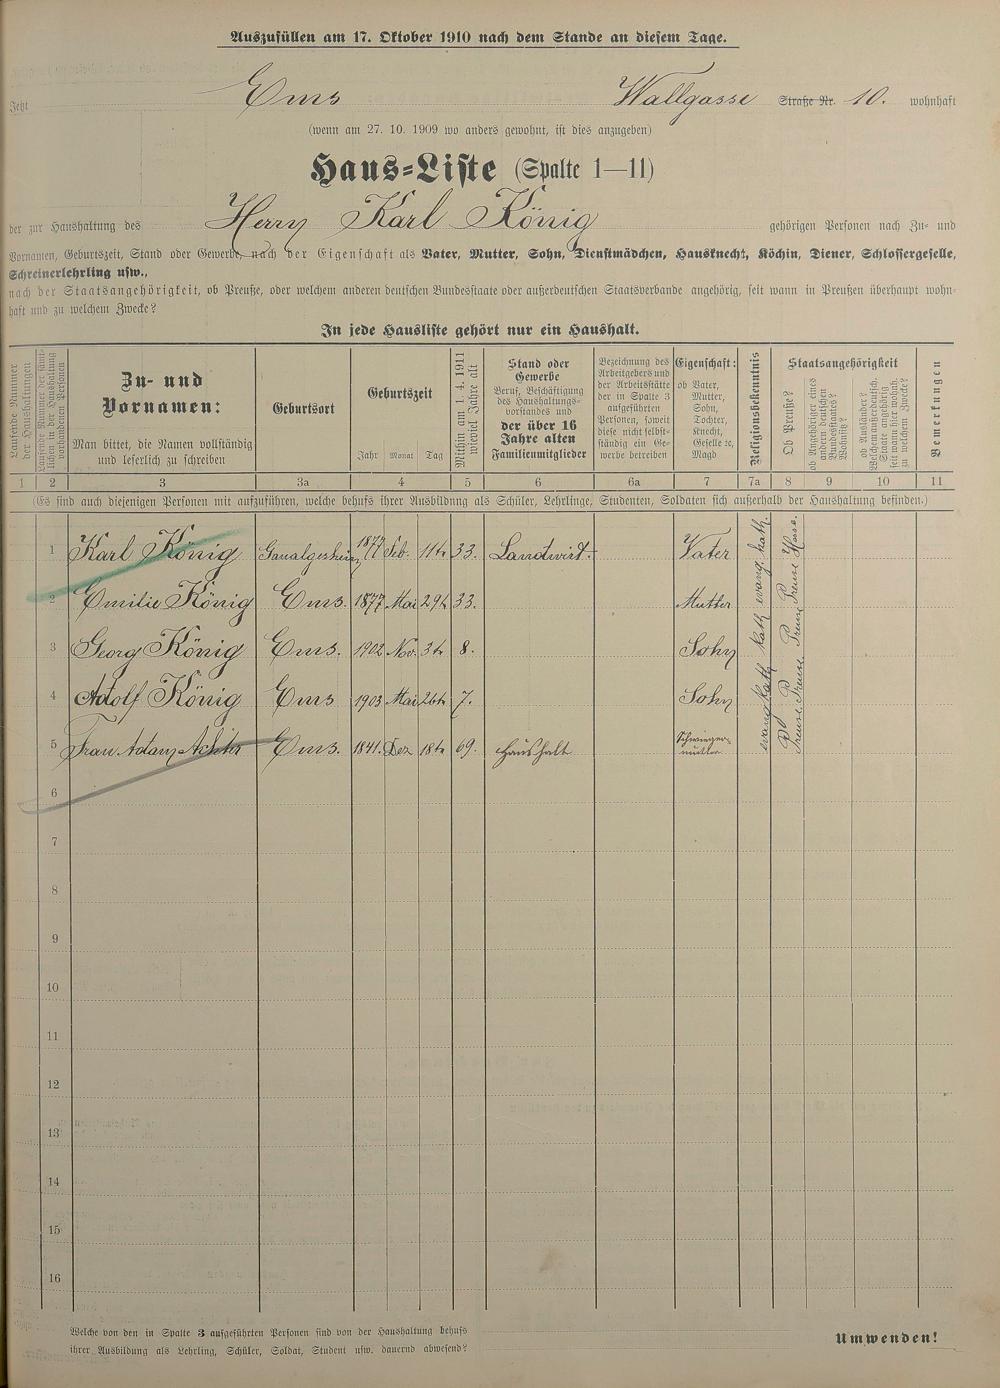 Auszufüllen am 17. Oktober 1910 nach dem Stande an diesem Tage.
Jetzt Ems Wallgasse Straße Nr. 10. wohnhaft
(wenn am 27. 10. 1909 wo anders gewohnt, ist dies anzugeben)
Haus-Liste (Spalte 1—11)
der zur Haushaltung des Herrn Karl König gehörigen Personen nach Zu- und
Vornamen, Geburtszeit, Stand oder Gewerbe, nach der Eigenschaft als Vater, Mutter, Sohn, Dienstmädchen, Hausknecht, Köchin, Diener, Schlossergeselle,
Schreinerlehrling usw.,
nach der Staatsangehörigkeit, ob Preuße, oder welchem anderen deutschen Bundesstaate oder außerdeutschen Staatsverbande angehörig, seit wann in Preußen überhaupt wohn-
haft und zu welchem Zwecke?
In jede Hausliste gehört nur ein Haushalt.
Laufende Nummer
der Haushaltungen
Laufende Nummer der sämt-
lichen in der Haushaltung
vorhandenen Personen
Zu- und
Vornamen:
Man bittet, die Namen vollständig
und leserlich zu schreiben
Geburtsort
Geburtszeit
Jahr Monat Tag
Mithin am 1. 4. 1911
wieviel Jahre alt
Stand oder
Gewerbe
Beruf, Beschäftigung
des Haushaltungs-
vorstandes und
der über 16
Jahre alten
Familienmitglieder
Bezeichnung des
Arbeitgebers und
der Arbeitsstätte
der in Spalte 3
aufgeführten
Personen, soweit
diese nicht selbst-
ständig ein Ge-
werbe betreiben
Eigenschaft:
ob Vater,
Mutter,
Sohn,
Tochter,
Knecht,
Geselle ec,
Magd
Religionsbekenntnis
Staatsangehörigkeit
Ob Preuße?
ob Angehöriger eines
andern deutschen
Bundesstaates?
Wohnsitz?
ob Ausländer?
Welchem außerdeutsch.
Staate angehörig
seit wann hier wohnh.
zu welchem Zwecke?
Bemerkungen
1 2 3 3a 4 5 6 6a 7 7a 8 9 10 11
(Es sind auch diejenigen Personen mit aufzuführen, welche behufs ihrer Ausbildung als Schüler, Lehrlinge, Studenten, Soldaten sich außerhalb der Haushaltung befinden.)
1 Karl König Gaualgesheim 1877 Feb. 11te 33. Landwirt. Vater
2 Emilie König Ems. 1877 Mai 29t 33. Mutter
3 Georg König Ems. 1902 Nov. 3te 8. Sohn
4 Adolf König Ems 1903 Mai 26te 7. Sohn
5 Frau Adam Ems. 1841. Dez 18te 69. Haushalt Schwieger-
mutter
evang kath kath evang. kath.
6
7
8
9
10
11
12
13
14
15
16
Welche von den in Spalte 3 aufgeführten Personen sind von der Haushaltung behufs
ihrer Ausbildung als Lehrling, Schüler, Soldat, Student usw. dauernd abwesend?
Umwenden!